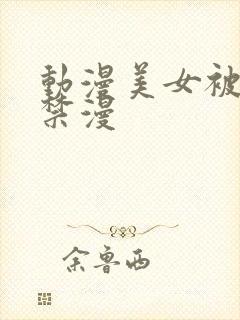 動漫美女被
漫
余魯西